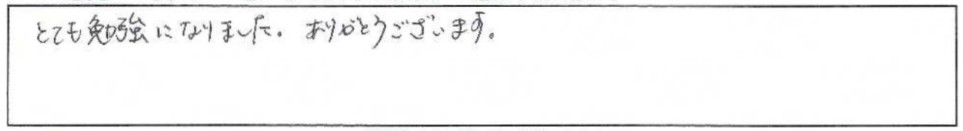 とても勉強になりました。ありがとうございます。